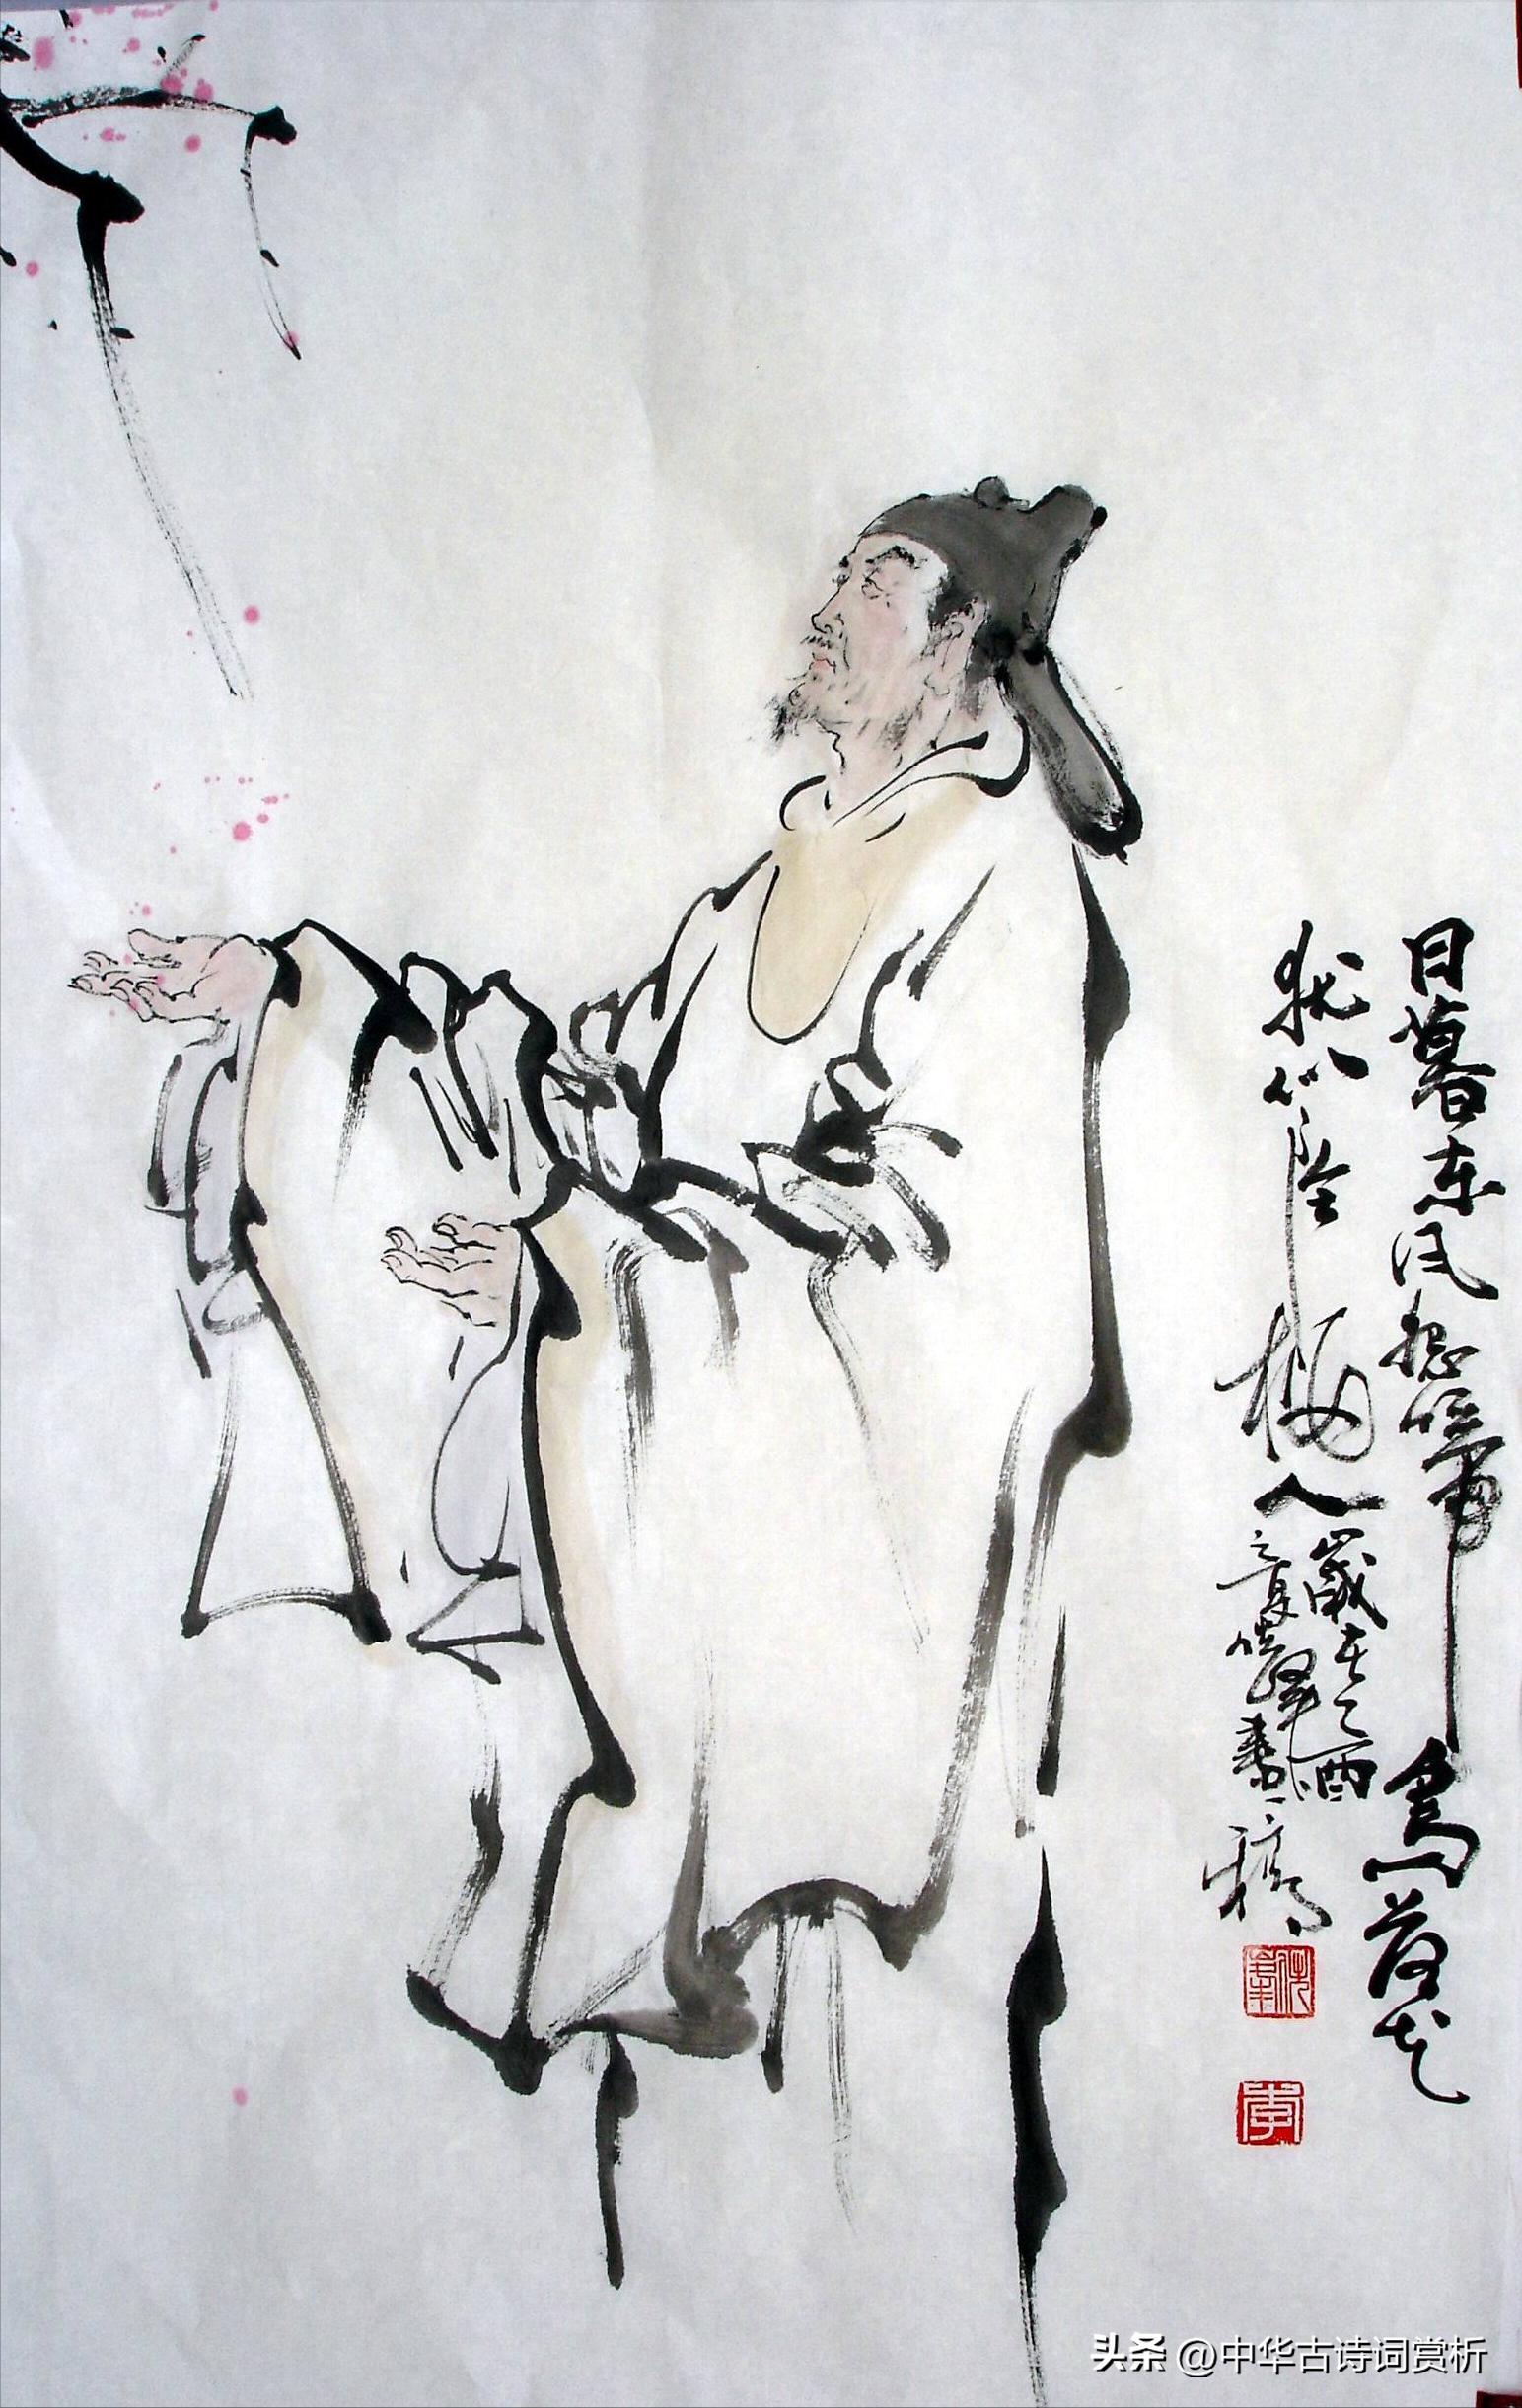 日暮东风怨啼鸟落花
犹似坠楼人
歲在乙酉
之夏
稿
头条 @中华古诗词赏析